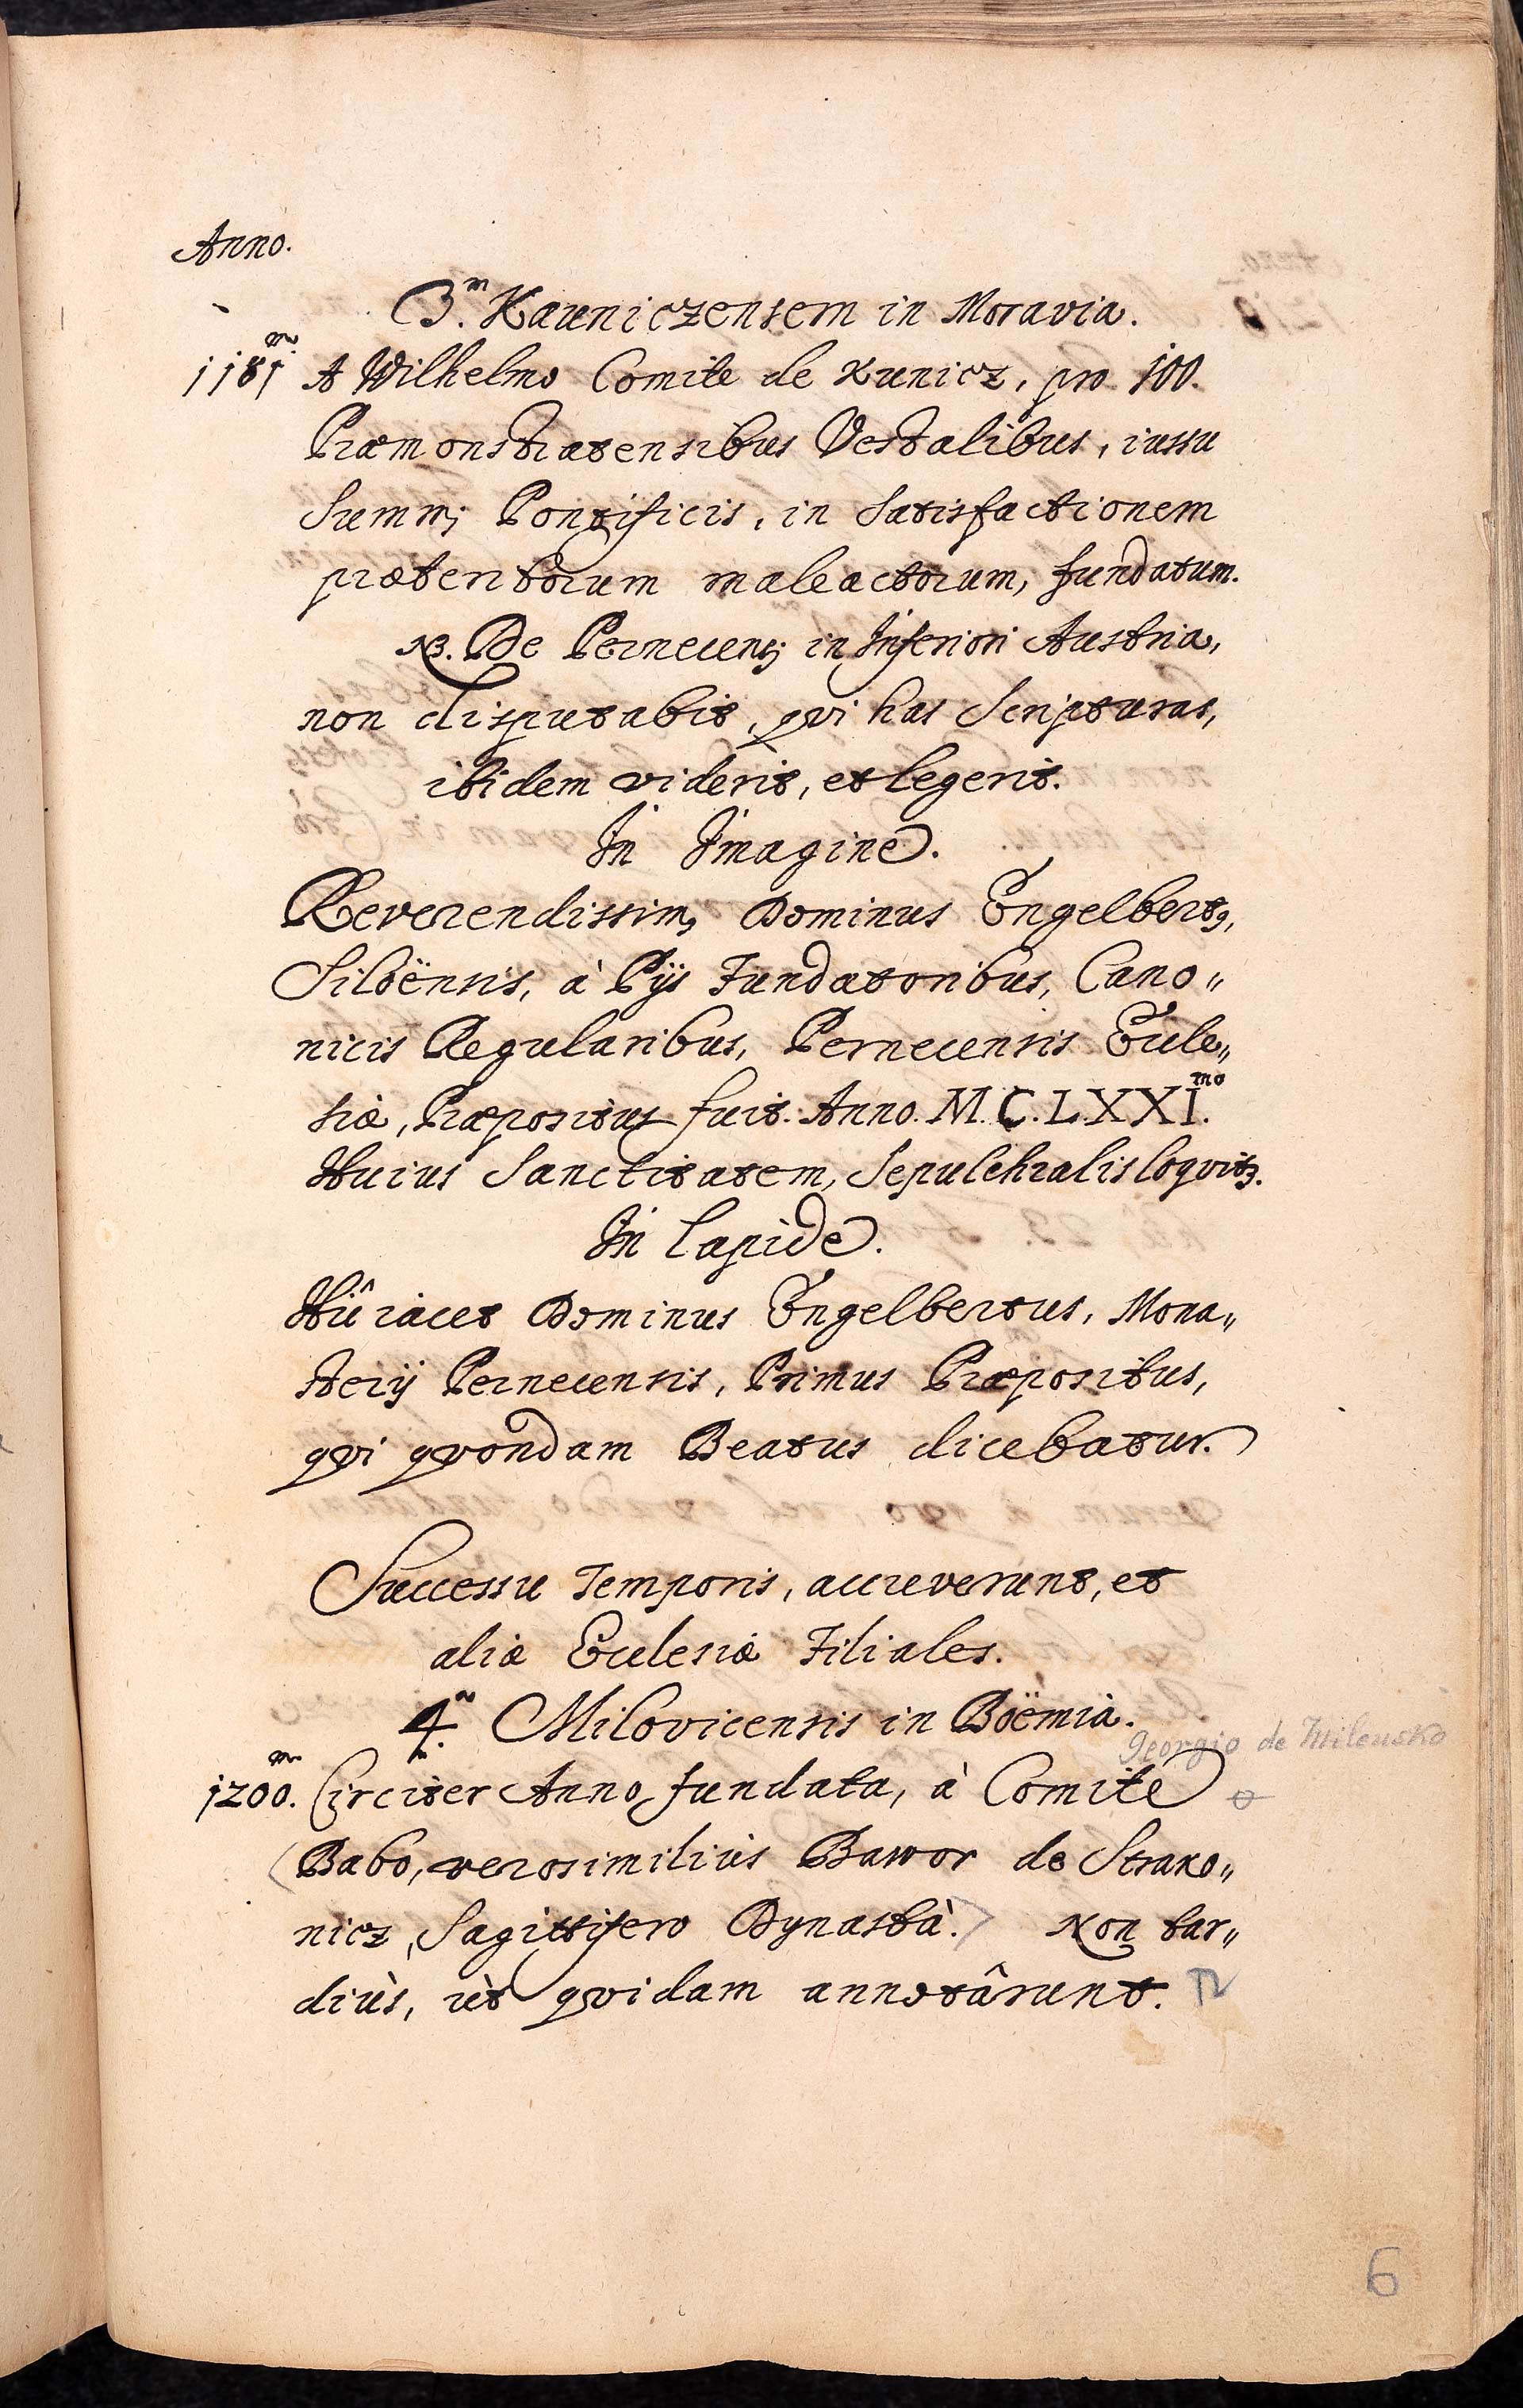 Anno.
3.m Kauniczensem in Moravia.
1181.m A Wilhelmo Comite de Kunicz, pro 100.
Præmonstratensibus Vestalibus, iussu
Summi Pontificis, in Satisfactionem
præteritorum maleactorum, fundatum.
NB. De Pernecensi in Inferiori Austria,
non disputabit, qvi has Scripturas,
ibidem viderit, et legerit.
In Imagine.
Reverendissimꝯ Dominus Engelbertꝯ,
Siloënsis, à Pijs Fundatoribus, Cano„
nicis Regularibus, Pernecensis Eccle„
siæ, Præpositus fuit. Anno. M. C. L. XXI.mo
Huius Sanctitatem, Sepulchralis loqvitꝛ.
In Lapide.
Hîc iacet Dominus Engelbertus, Mona„
sterij Pernecensis, Primus Præpositus,
qvi qvondam Beatus dicebatur.
Successu Temporis, accreverunt, et
aliæ Ecclesiæ Filiales.
4. Milovicensis in Boëmia.
Georgio de Mileusko
1200.m Circiter Anno fundata, à Comite
(Babo, verosimiliùs Bawor de Strako„
nicz, Sagittifero Dynastà.) Non tar„
diùs, ùt qvidam annotârunt.
6